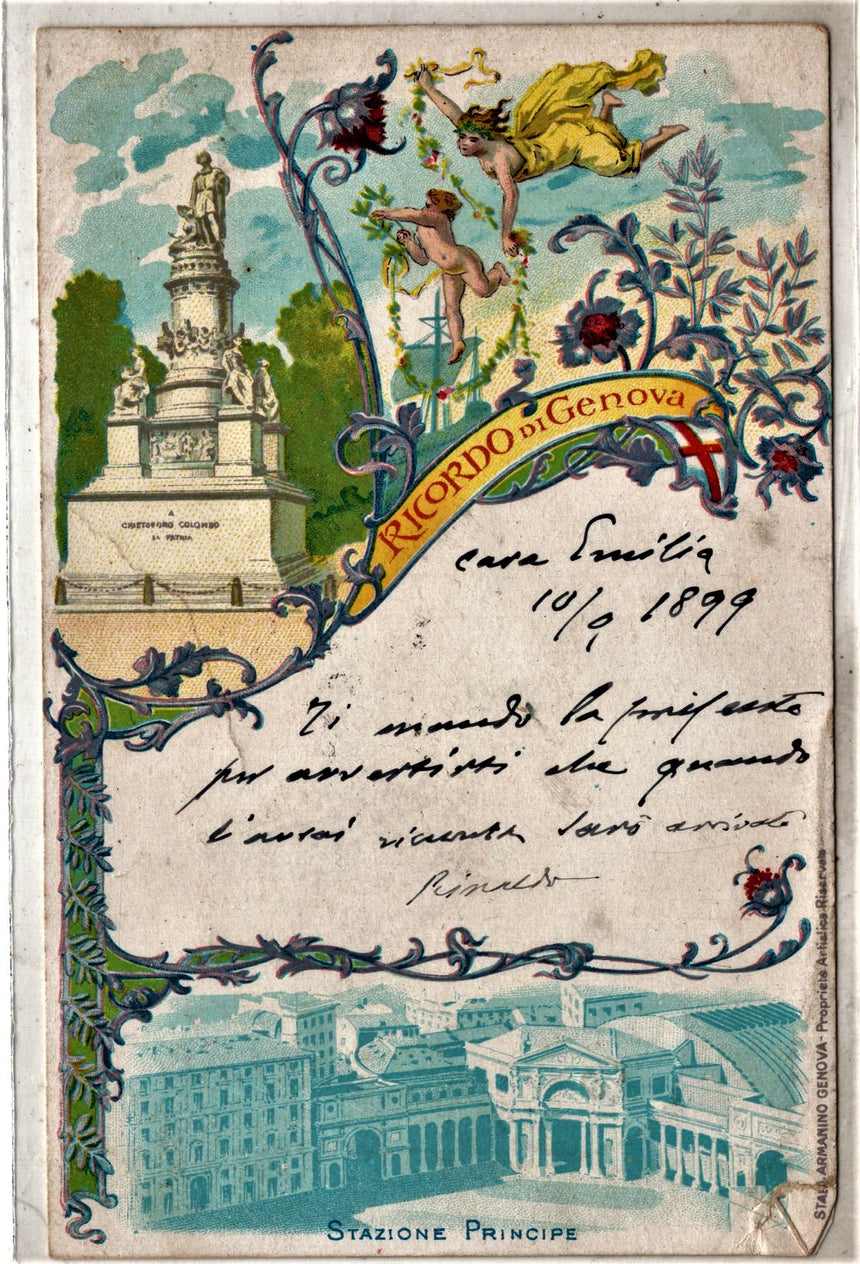 RICORDO DI Genova
A
CRISTOFORO COLOMBO
LA PATRIA
cara Emilia
10/9 1899
Ti mando la presente
per avvertirti che quando
l'avrai ricevuta sarò arrivato
Rinaldo
STAB. ARMANINO GENOVA - Proprietà Artistica Riservata
STAZIONE PRINCIPE